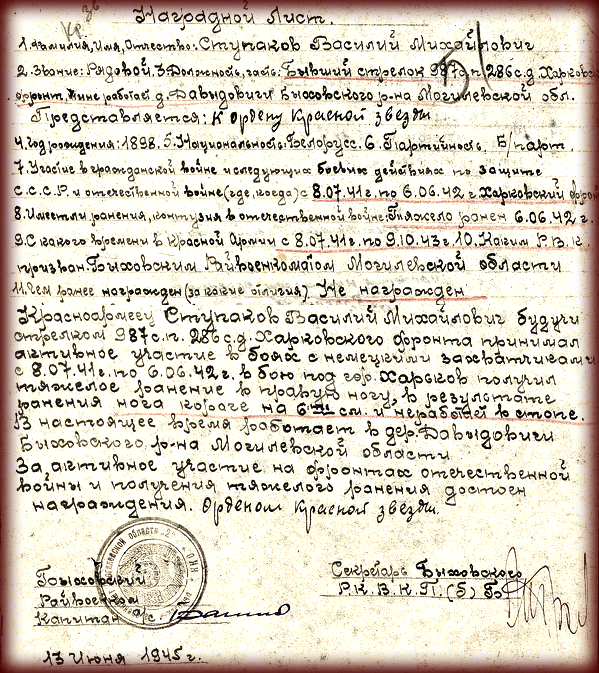 Наградной Лист.
1. Фамилия, Имя, Отчество: Ступаков Василий Михайлович
2. Звание: Рядовой, 3. Должность, часть: Бывший стрелок 987с.п. 286с.д. Харковск
фронт, Ныне работает д. Давыдовичи Быховского р-на Могилевской обл.
Представляется: К Ордену Красной звезды
4. Год рождения: 1898. 5. Национальность: Белорусс. 6. Партийность. Б/парт.
7. Участие в гражданской войне и следующих боевых действиях по защите
С.С.С.Р. и отечественной войне (где, когда) с 8.07.41г. по 6.06.42г. Харковский фрон
8. Имеет ли ранения, контузия в отечественной войне: Тяжело ранен 6.06.42г.
9. С какого времени в Красной Армии с 8.07.41г. по 9.10.43г. 10. Каким Р.В.К.
призван: Быховским Райвоенкоматом Могилевской области
11. Чем ранее награжден (за какие отличия) Не награжден
Красноармеец Ступаков Василий Михайлович будучи
стрелком 987с.п. 286с.д. Харковского фронта принимал
активное участие в боях с немецкими захватчиками
с 8.07.41г. по 6.06.42г. в бою под гор. Харьков получил
тяжелое ранение в правую ногу, в результате
ранения нога короче на 6 см. и неработает в стопе.
В настоящее время работает в дер. Давыдовичи
Быховского р-на Могилевской области
За активное участие на фронтах отечественной
войны и получения тяжелого ранения достоен
награждения. Орденом Красной звезды.
Быховский
Райвоенком
Капитан а/с
Секретарь Быховского
Р.К.В.К.П.(б) Б
13 Июня 1945г.